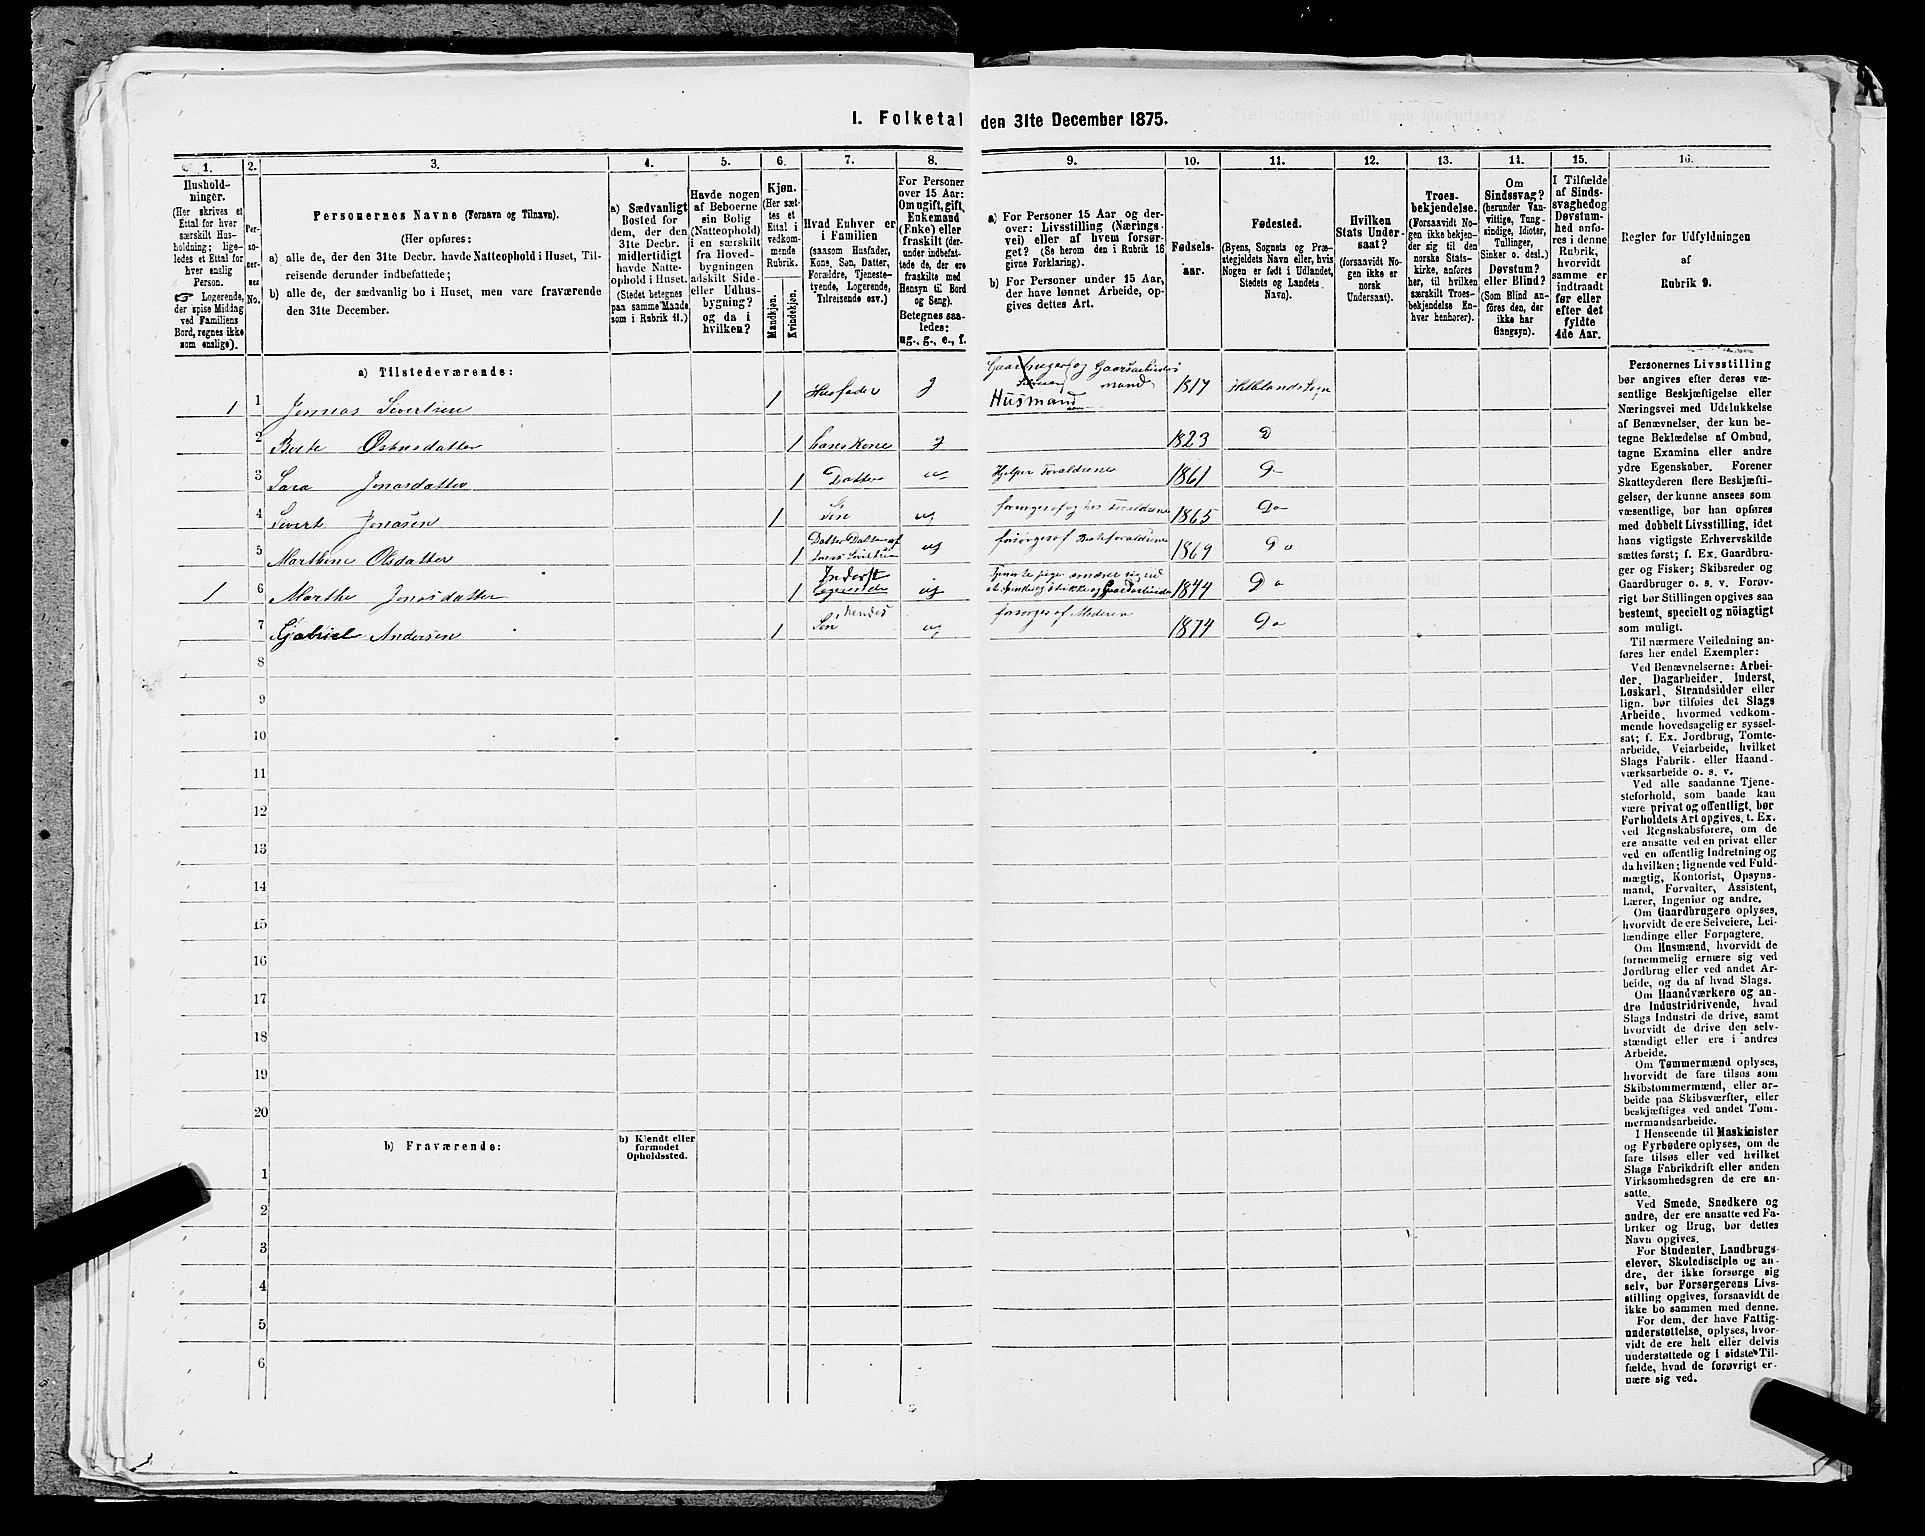 I. Folketal den 31te December 1875.
1. 2. 3. 4. 5. 6. 7. 8. 9. 10. 11. 12. 13. 14. 15. 16.
Hushold-
ninger.
(Her skrives et
Ettal for hver
særskilt Hus-
holdning; lige-
ledes et Ettal for
hver enslig
Person.
☞ Logerende,
der spise Middag
ved Familiens
Bord, regnes ikke
som enslige).
Per-
so-
ner-
nes
No.
Personernes Navne (Fornavn og Tilnavn).
(Her opføres:
a) alle de, der den 31te Decbr. havde Natteophold i Huset, Til-
reisende derunder indbefattede;
b) alle de, der sædvanlig bo i Huset, men vare fraværende
den 31te December.
a) Sædvanligt
Bosted for
dem, der den
31te Decbr.
midlertidigt
havde Natte-
ophold i Huset.
(Stedet betegnes
paa samme Maade
som i Rubrik 11.)
Havde nogen
af Beboerne
sin Bolig
(Natteophold)
i en særskilt
fra Hoved-
bygningen
adskilt Side-
eller Udhus-
bygning?
og da i
hvilken?
Kjøn.
(Her sæt-
tes et
Ettal i
vedkom-
mende
Rubrik.
Mandkjøn.
Kvindekjøn.
Hvad Enhver er
i Familien
(saasom Husfader,
Kone, Søn, Datter,
Forældre, Tjeneste-
tyende, Logerende,
Tilreisende osv.)
For Personer
over 15 Aar:
Om ugift, gift,
Enkemand
(Enke) eller
fraskilt (der-
under indbefat-
tede de, der ere
fraskilte med
Hensyn til Bord
og Seng).
Betegnes saa-
ledes:
ug., g., e., f.
a) For Personer 15 Aar og der-
over: Livsstilling (Nærings-
vei) eller af hvem forsør-
get? (Se herom den i Rubrik 16
givne Forklaring).
b) For Personer under 15 Aar,
der have lønnet Arbeide, op-
gives dettes Art.
Fødsels-
aar.
Fødested.
(Byens, Sognets og Præ-
stegjeldets Navn eller, hvis
Nogen er født i Udlandet,
Stedets og Landets
Navn).
Hvilken
Stats Under-
saat?
(forsaavidt No-
gen ikke er
norsk
Undersaat).
Troes-
bekjendelse.
(Forsaavidt No-
gen ikke bekjen-
der sig til den
norske Stats-
kirke, anføres
her, til hvilken
særskilt Troes-
bekjendelse En-
hver henhører).
Om
Sindssvag?
(herunder Van-
vittige, Tung-
sindige, Idioter,
Tullinger,
Sinker o. desl.)
Døvstum?
eller Blind?
(Som Blind an-
føres den, der
ikke har
Gangsyn).
I Tilfælde
af Sinds-
svaghed og
Døvstum-
hed anfø-
res i denne
Rubrik,
hvorvidt
samme er
indtraadt
før eller
efter det
fyldte
4de Aar.
Regler for Udfyldningen
af
Rubrik 9.
a) Tilstedeværende:
1 1 Jonnas Sivertsen 1 Husfader g Husmand 1817 Hetlands Sogn
2 Berte Osmusdatter 1 hans Kone g 1823 D
3 Sara Jonasdatter 1 Datter ug Hjelper Foraldrene 1861 Do
4 Sivert Jonasen 1 Søn ug forsørges af og hos Foraldrene 1865 Do
5 Marthine Olsdatter 1 Datter Datter af Jonas Sivertsen ug forsørges af Besteforaldrene 1869 Do
1 6 Marthe Jonasdatter 1 Inderst Logerende ug 1844 Do
7 Gabriel Andersen 1 hendes Søn ug forsørges af Moderen 1874 Do
8
9
10
11
12
13
14
15
16
17
18
19
20
b) Fraværende:
b) Kjendt eller
formodet
Opholdssted.
1
2
3
4
5
6
Personernes Livsstilling
bør angives efter deres væ-
sentlige Beskjæftigelse eller
Næringsvei med Udelukkelse
af Benævnelser, der kun be-
tegne Beklædelse af Ombud,
tagne Examina eller andre
ydre Egenskaber. Forener
Skatteyderen flere Beskjæfti-
gelser, der kunne ansees som
væsentlige, bør han opføres
med dobbelt Livsstilling, idet
hans vigtigste Erhvervskilde
sættes først; f. Ex. Gaardbru-
ger og Fisker; Skibsreder og
Gaardbruger o. s. v. Forøv-
rigt bør Stillingen opgives saa
bestemt, specielt og nøiagtigt
som muligt.
Til nærmere Veiledning an-
føres her endel Exempler:
Ved Benævnelserne: Arbei-
der, Dagarbeider, Inderst,
Løskarl, Strandsidder eller
lign. bør tilføies det Slags
Arbeide, hvormed vedkom-
mende hovedsagelig er syssel-
sat; f. Ex. Jordbrug, Tomte-
arbeide, Veiarbeide, hvilket
Slags Fabrik- eller Haand-
værksarbeide o. s. v.
Ved alle saadanne Tjene-
steforhold, som baade kan
være privat og offentligt, bør
Forholdets Art opgives, t. Ex.
ved Regnskabsførere, om de
ere ansatte ved en privat eller
ved en offentlig Indretning og
da hvilken; lignende ved Fuld-
mægtig, Kontorist, Opsyns-
mand, Forvalter, Assistent,
Lærer, Ingeniør og andre.
Om Gaardbrugere oplyses,
hvorvidt de ere Selveiere, Lei-
lændinge eller Forpagtere.
Om Husmænd, hvorvidt de
fornemmelig ernære sig ved
Jordbrug eller ved andet Ar-
beide, og da af hvad Slags.
Om Haandværkere og an-
dre Industridrivende, hvad
Slags Industri de drive, samt
hvorvidt de drive den selv-
stændigt eller ere i andres
Arbeide.
Om Tømmermænd oplyses,
hvorvidt de fare tilsøs som
Skibstømmermænd, eller ar-
beide paa Skibsværfter, eller
beskjæftiges ved andet Tøm-
mermandsarbeide.
I Henseende til Maskinister
og Fyrbødere oplyses, om de
fare tilsøs eller ved hvilket
Slags Fabrikdrift eller anden
Virksomhedsgren de ere an-
satte.
Ved Smede, Snedkere og
andre, der ere ansatte ved Fa-
briker og Brug, bør dettes
Navn opgives.
For Studenter, Landbrugs-
elever, Skoledisciple og an-
dre, der ikke forsørge sig
selv, bør Forsørgerens Livs-
stilling opgives, forsaavidt de
ikke bo sammen med denne.
For dem, der have Fattig-
understøttelse, oplyses, hvor-
vidt de ere helt eller delvis
understøttede og i sidste Til-
fælde, hvad de forøvrigt er-
nære sig ved.